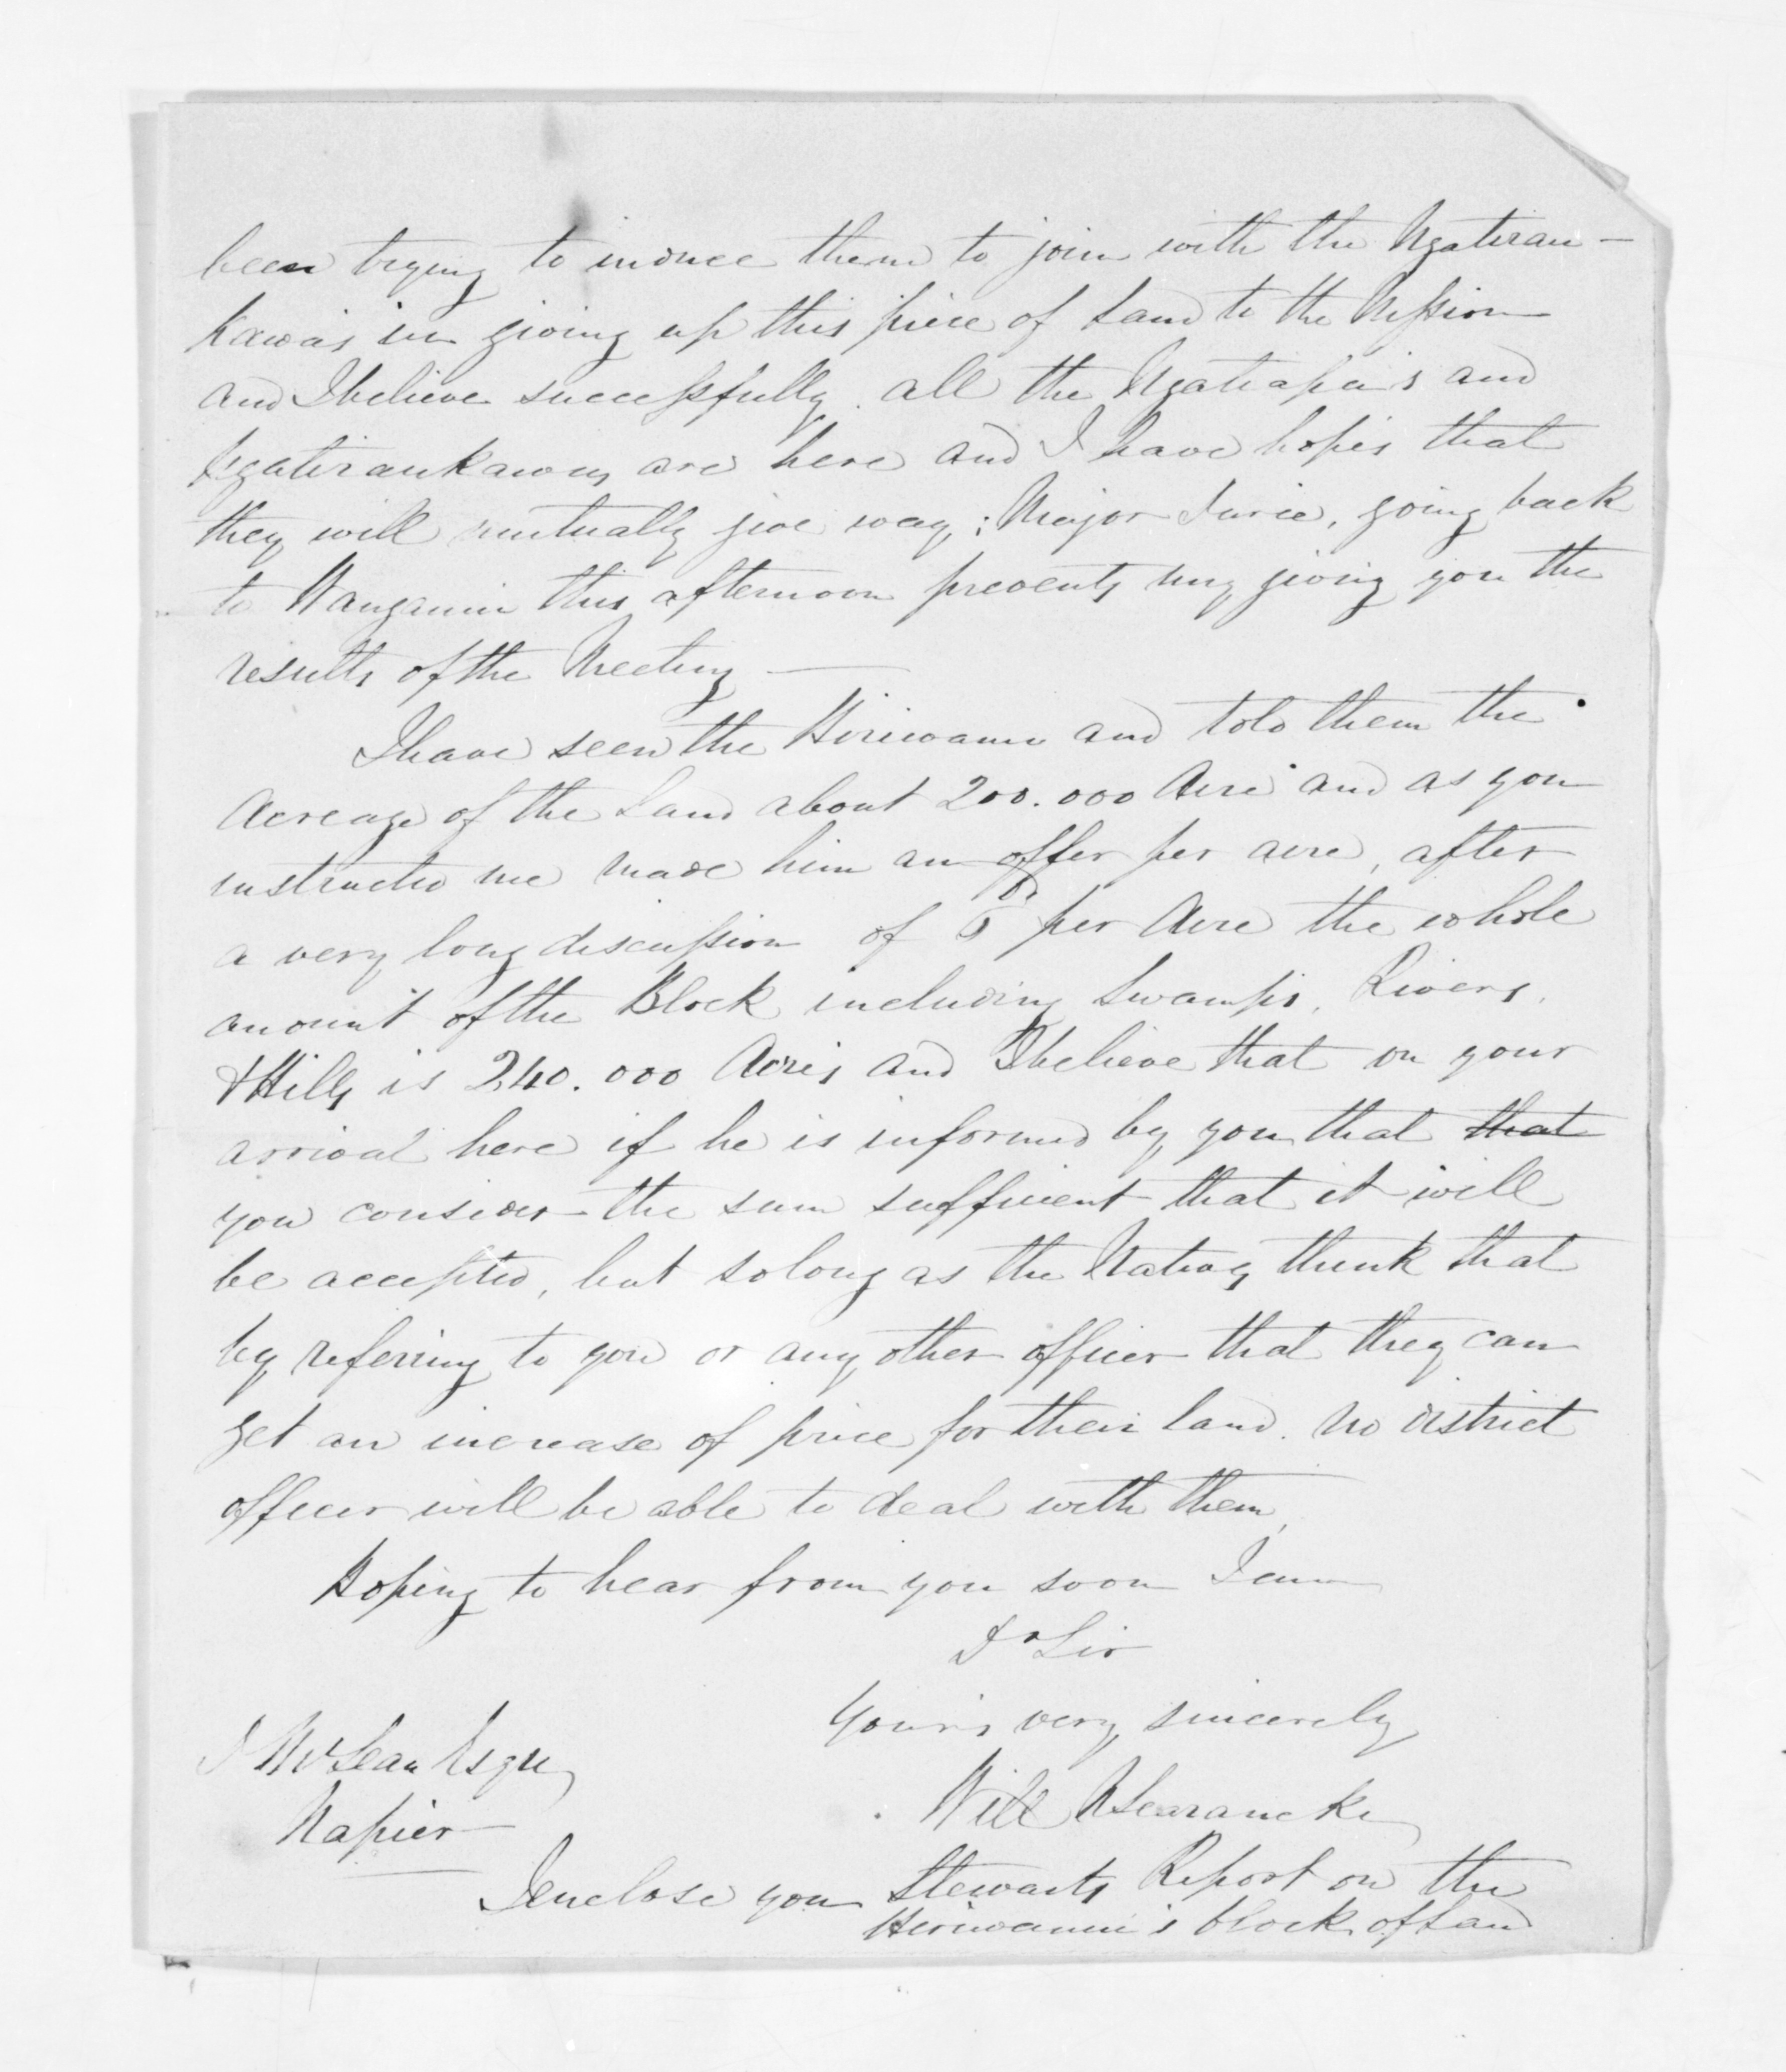 been trying to induce them to join with the Ngatirau-
kawa's in giving up this piece of land to the Mission
and I believe successfully. all the Ngatiapa's and
Ngatiraukawas are here and I have hopes that
they will mutually give way; Major Durie, going back
to Wanganui this afternoon prevents my giving you the
results of the Meeting —
I have seen the Hiriwanu and told them the
Acreage of the Land about 200.000 Acre and as you
instructed me made him an offer per acre, after
a very long discussion of 6d per Acre the whole
amount of the Block including Swamps, Rivers,
& Hills is 240.000 Acres and I believe that on your
arrival here if he is informed by you that that
you consider the sum sufficient that it will
be accepted, but so long as the Natives think that
by referring to you or any other officer that they can
get an increase of price for their land. no district
officer will be able to deal with them,
Hoping to hear from you soon I am
Dr Sir
Yours very sincerely
Will N Searancke
D McLean Esqre
Napier
I enclose you Stewarts Report on the
Hiriwanu's block of Land